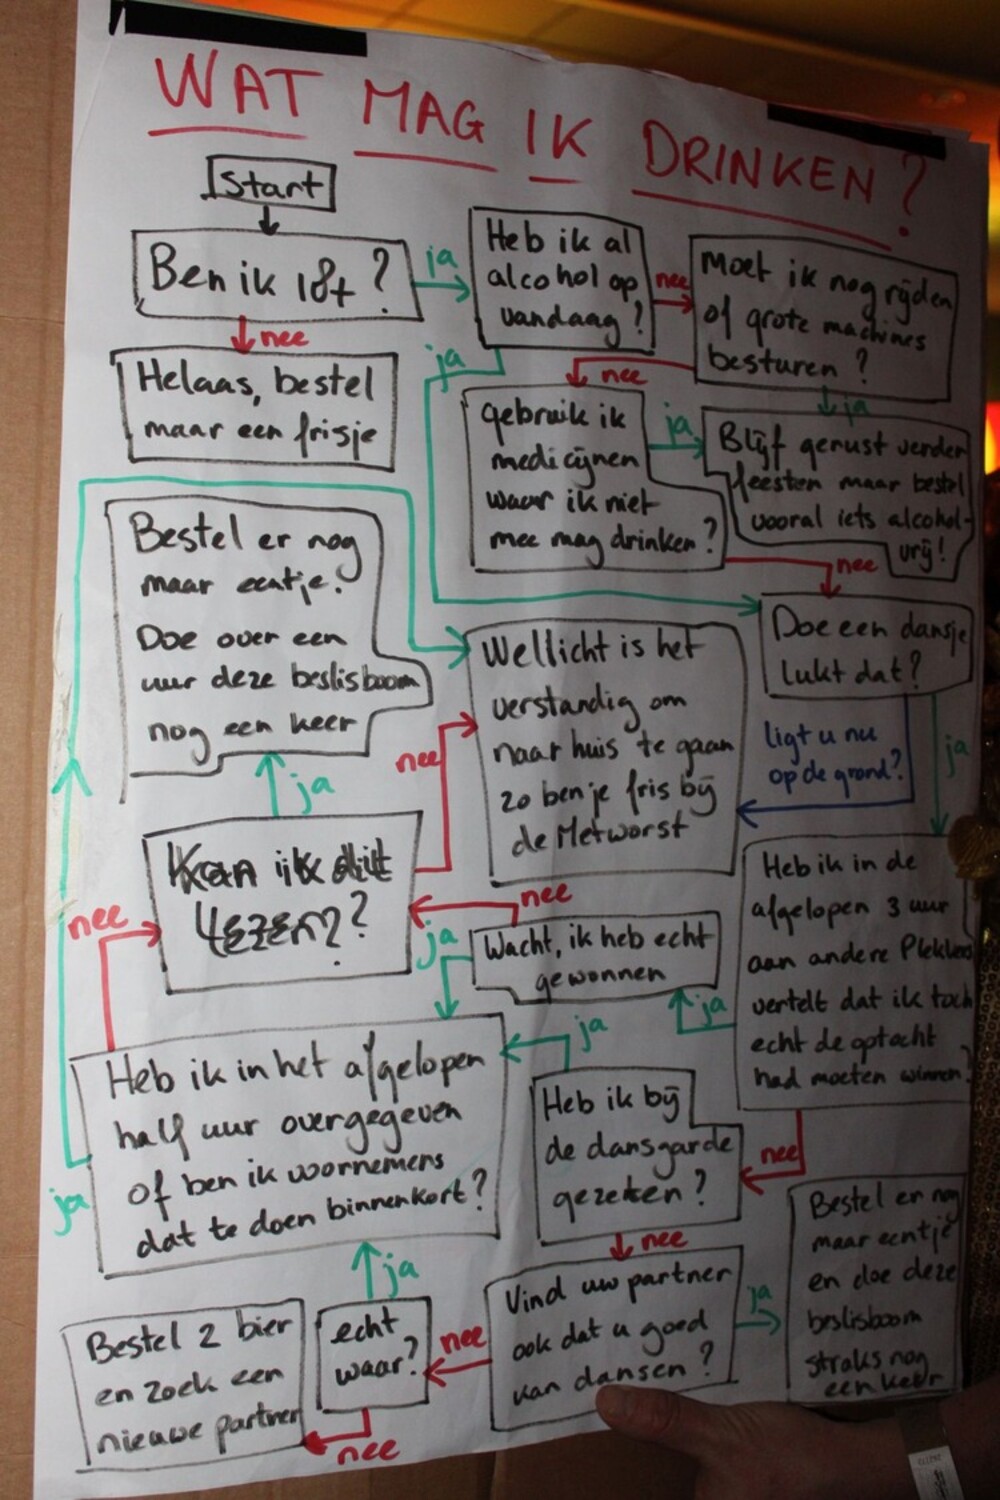 WAT MAG IK DRINKEN?
Start
Ben ik 18+?
ja
nee
Helaas, bestel
maar een frisje
Heb ik al
alcohol op
vandaag?
nee
ja
Moet ik nog rijden
of grote machines
besturen?
nee
ja
Gebruik ik
medicijnen
waar ik niet
mee mag drinken?
ja
nee
Blijf gerust verder
feesten maar bestel
vooral iets alcohol-
vrij!
Doe een dansje
lukt dat?
ligt u nu
op de grond?
ja
Bestel er nog
maar eentje.
Doe over een
uur deze beslisboom
nog een keer
Wellicht is het
verstandig om
naar huis te gaan
zo ben je fris bij
de Metworst
nee
ja
Kan ik dit
lezen?
nee
Heb ik in de
afgelopen 3 uur
aan andere Plekkers
vertelt dat ik toch
echt de optocht
had moeten winnen?
ja
nee
Wacht, ik heb echt
gewonnen
nee
ja
Heb ik in het afgelopen
half uur overgegeven
of ben ik voornemens
dat te doen binnenkort?
ja
Heb ik bij
de dansgarde
gezeten?
ja
nee
Vind uw partner
ook dat u goed
kan dansen?
ja
nee
Bestel er nog
maar eentje
en doe deze
beslisboom
straks nog
een keer
echt
waar?
ja
nee
Bestel 2 bier
en zoek een
nieuwe partner